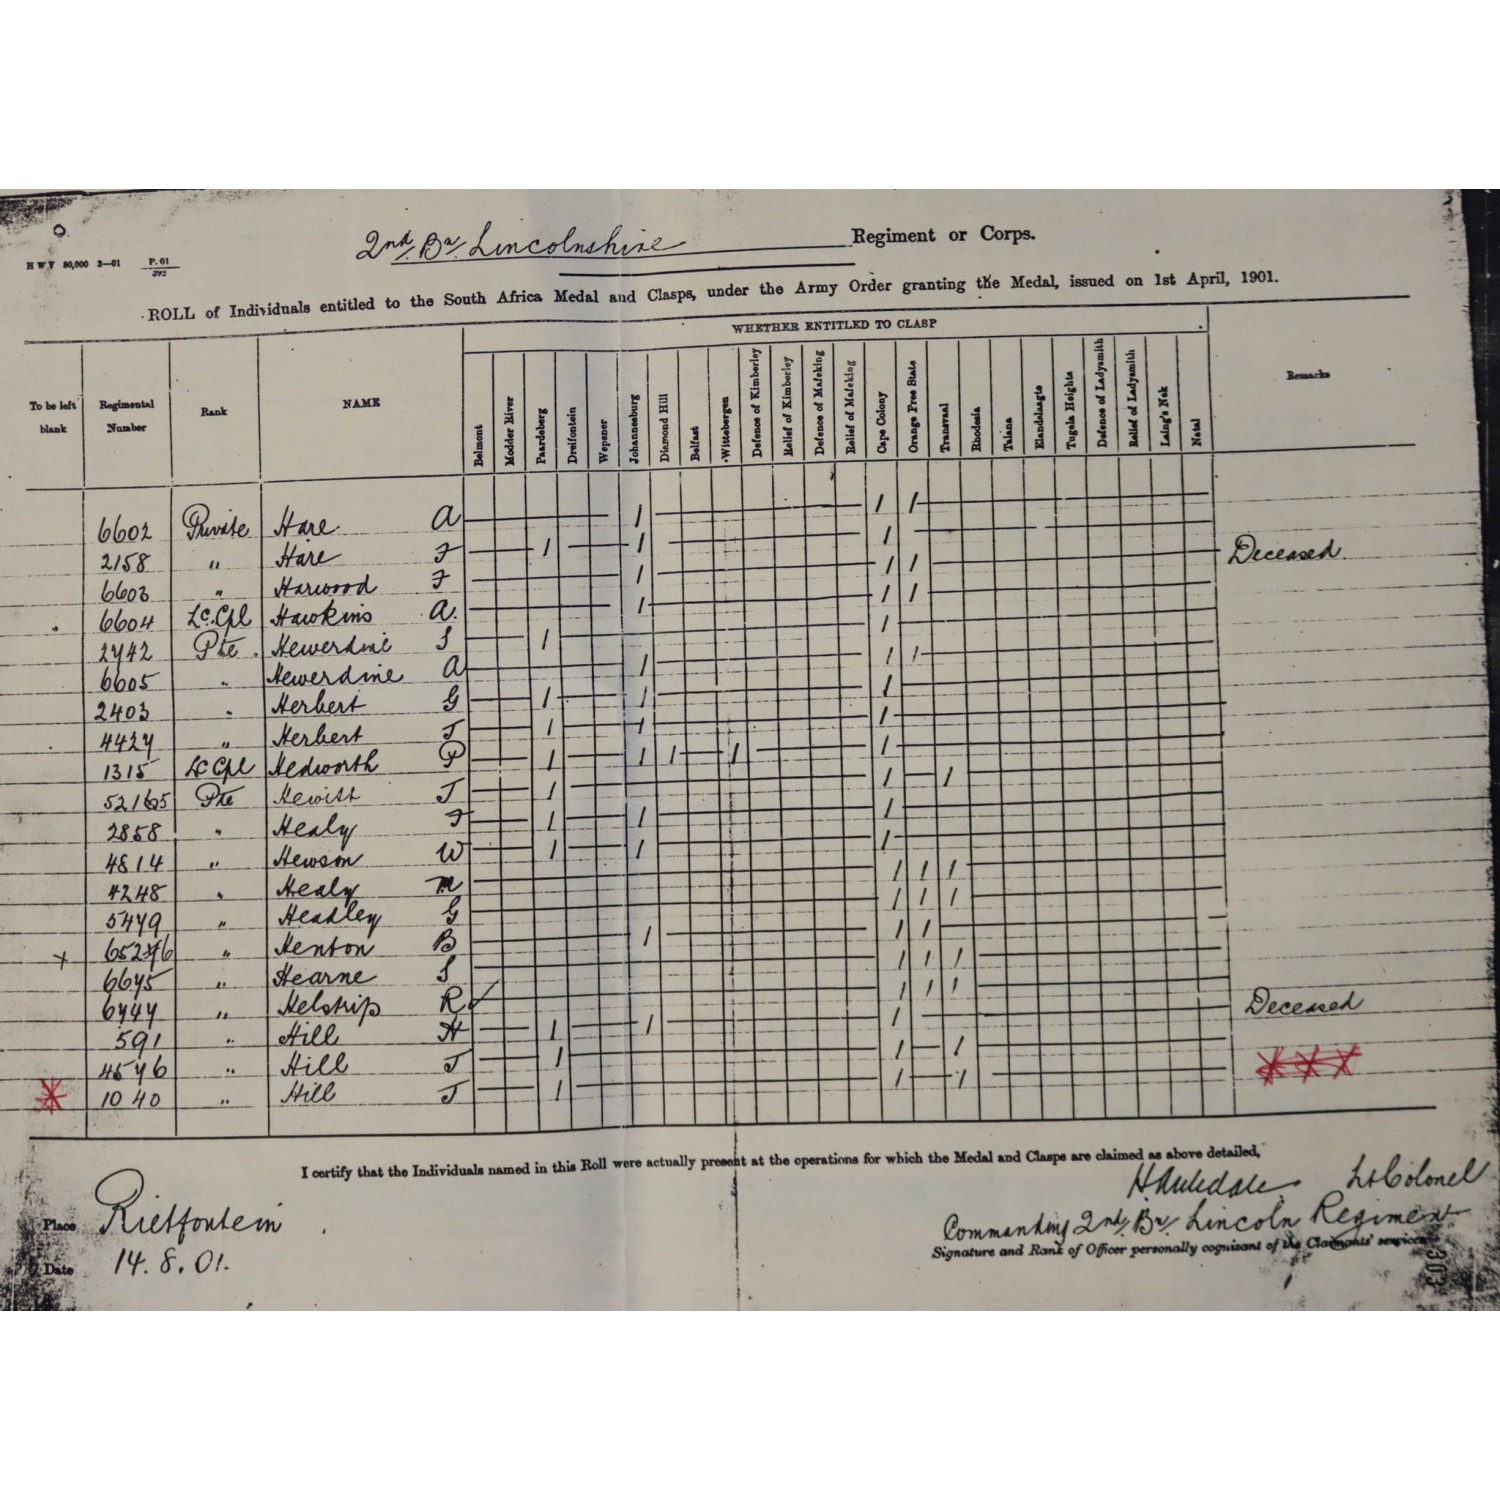 2nd Bn Lincolnshire Regiment or Corps.
H W V 80,000 3—01 P. 01
392
ROLL of Individuals entitled to the South Africa Medal and Clasps, under the Army Order granting the Medal, issued on 1st April, 1901.
WHETHER ENTITLED TO CLASP
To be left blank Regimental Number Rank NAME Belmont Modder River Paardeberg Dreifontein Wepener Johannesburg Diamond Hill Belfast Wittebergen Defence of Kimberley Relief of Kimberley Defence of Mafeking Relief of Mafeking Cape Colony Orange Free State Transvaal Rhodesia Talana Elandslaagte Tugela Heights Defence of Ladysmith Relief of Ladysmith Laing's Nek Natal Remarks
6602 Private Hare A 1 1 1
2158 " Hare F 1 1 1 Deceased
6603 " Harwood F 1 1 1
6604 Lc. Cpl Hawkins A. 1 1 1
2742 Pte Hewerdine S 1 1
6605 " Hewerdine A 1 1 1
2403 " Herbert G 1 1 1
4427 " Herbert J 1 1 1
1315 Lc Cpl Hedworth P 1 1 1 1 1
Pte Hewitt J 1 1 1
2858 " Healy F 1 1 1
4814 " Hewson W 1 1 1
4248 " Healy M 1 1 1
5479 " Headley G 1 1 1
x " Henton B 1 1 1
6675 " Hearne S 1 1 1
6747 " Helstrip R ✓ 1 1 1
591 " Hill H 1 1 1 Deceased
4576 " Hill J 1 1 1
1040 " Hill J 1 1 1
I certify that the Individuals named in this Roll were actually present at the operations for which the Medal and Clasps are claimed as above detailed,
Place Rietfontein
Date 14. 8. 01.
Lt Colonel
Commanding 2nd Bn Lincoln Regiment
Signature and Rank of Officer personally cognisant of the Claimants' services
303